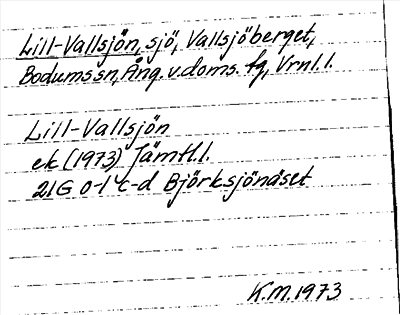 Lill-Vallsjön, sjö, Vallsjöberget,
Bodumssn, Ång. v. doms. fg, Vrnl. l.
Lill-Vallsjön
ek (1973) Jämtl. l.
21G 0-1 c-d Björksjönäset
K.M. 1973